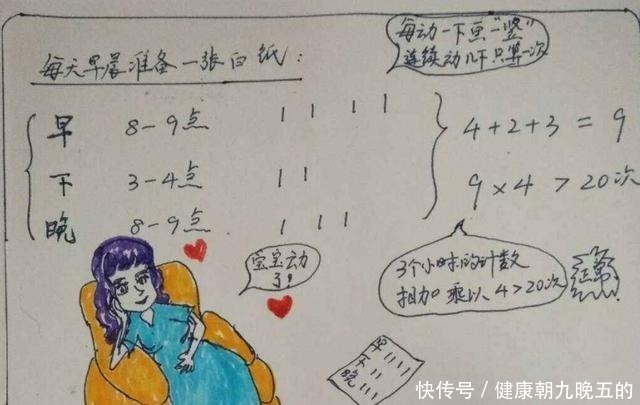 每动一下画“一竖”
连续动几下只算一次
每天早晨准备一张白纸：
早 8-9点 | | | |
4+2+3=9
下 3-4点 | |
9×4>20次
晚 8-9点 | | |
宝宝动
了!
3个小时的计数
相加乘以4>20次
正常
早 | | | |
下 | |
晚 | | |
快传号/健康朝九晚五的